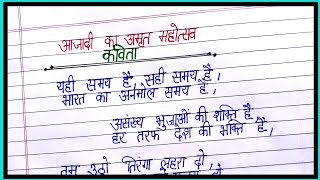 आजादी का अमृत महोत्सव
कविता
यही समय है, सही समय है,
भारत का अनमोल समय है,
असंख्य भुजाओं की शक्ति है
हर तरफ देश की भक्ति है,
तुम उठो तिरंगा लहरा दो